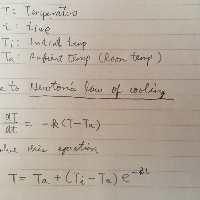 T: Temperature
t: time
Ti: Initial temp
Ta: Ambient temp (Room temp)
to Newton's law of cooling
dT/dt = -k(T-Ta)
this equation
T = Ta + (Ti - Ta) e^-kt